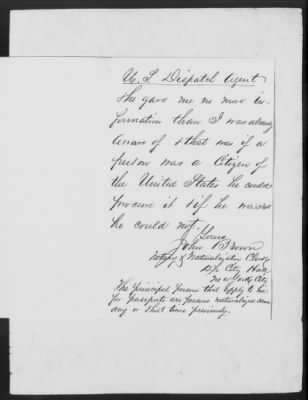 U. S. Dispatch Agent
He gave me no more in-
formation than I was already
aware of & that was if a
person was a Citizen of
the United States he could
procure it & if he was not
he could not.
Yours
John Brown
Notary & Naturalization Clerk
City Hall
New York City
The principal persons that apply to him
for passports are persons naturalized same
day or short time previously.